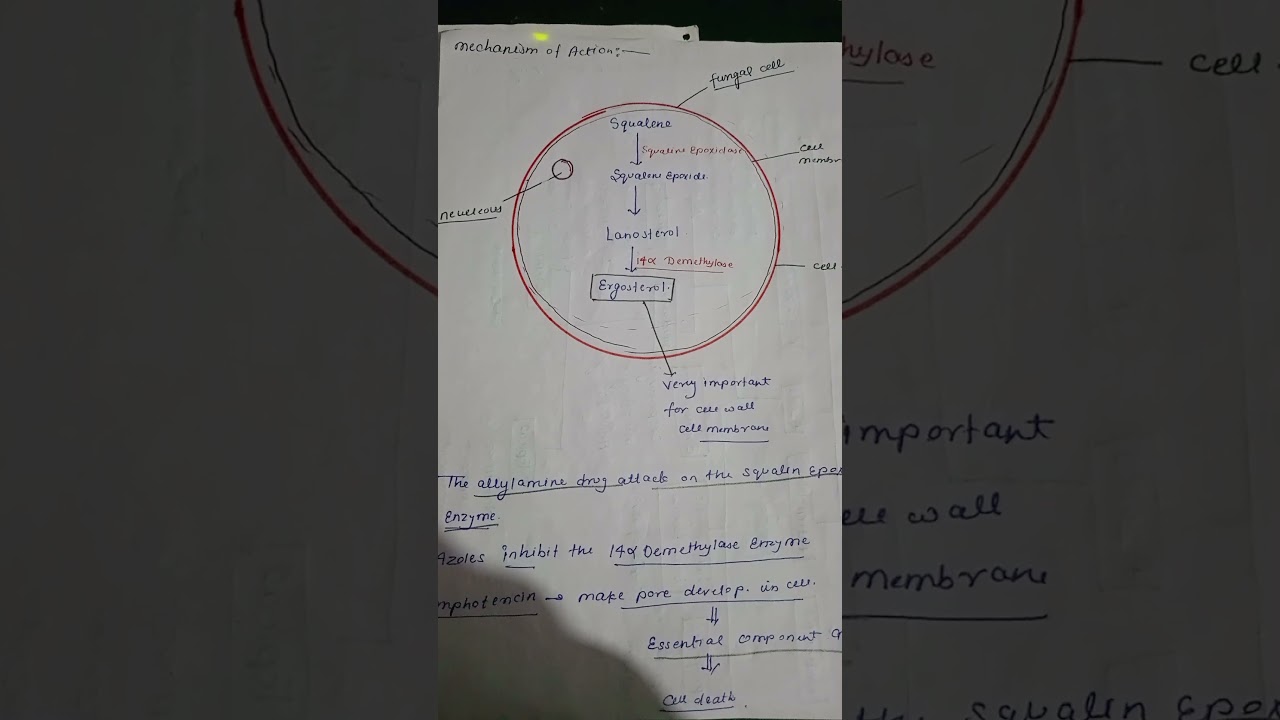 mechanism of Action:-
fungal cell
Squalene
Squaline Epoxidase
cell
membr
Squalene Epoxide
neucleous
Lanosterol
14α Demethylase
cell
Ergosterol.
Very important
for cell wall
cell membrane
The allylamine drug attack on the squalin Epo
Enzyme.
Azoles inhibit the 14α Demethylase Enzyme
mphotencin → make pore develop. in cell.
Essential component
Cell death.
hylase
cell
important
ell wall
membrane
squalin Epo